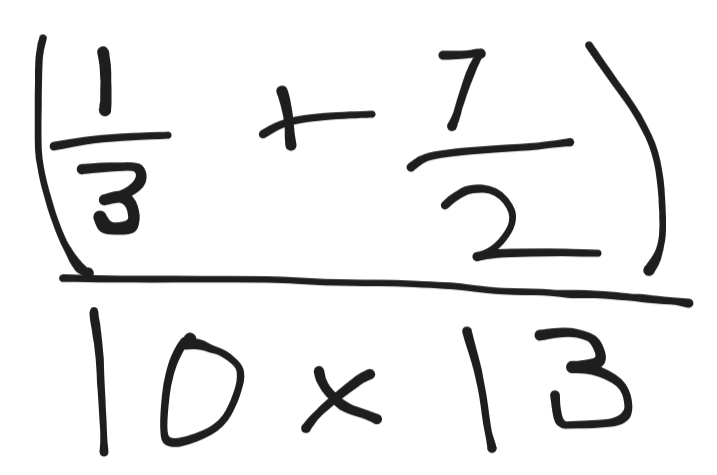 (1/3 + 7/2)
10 x 13